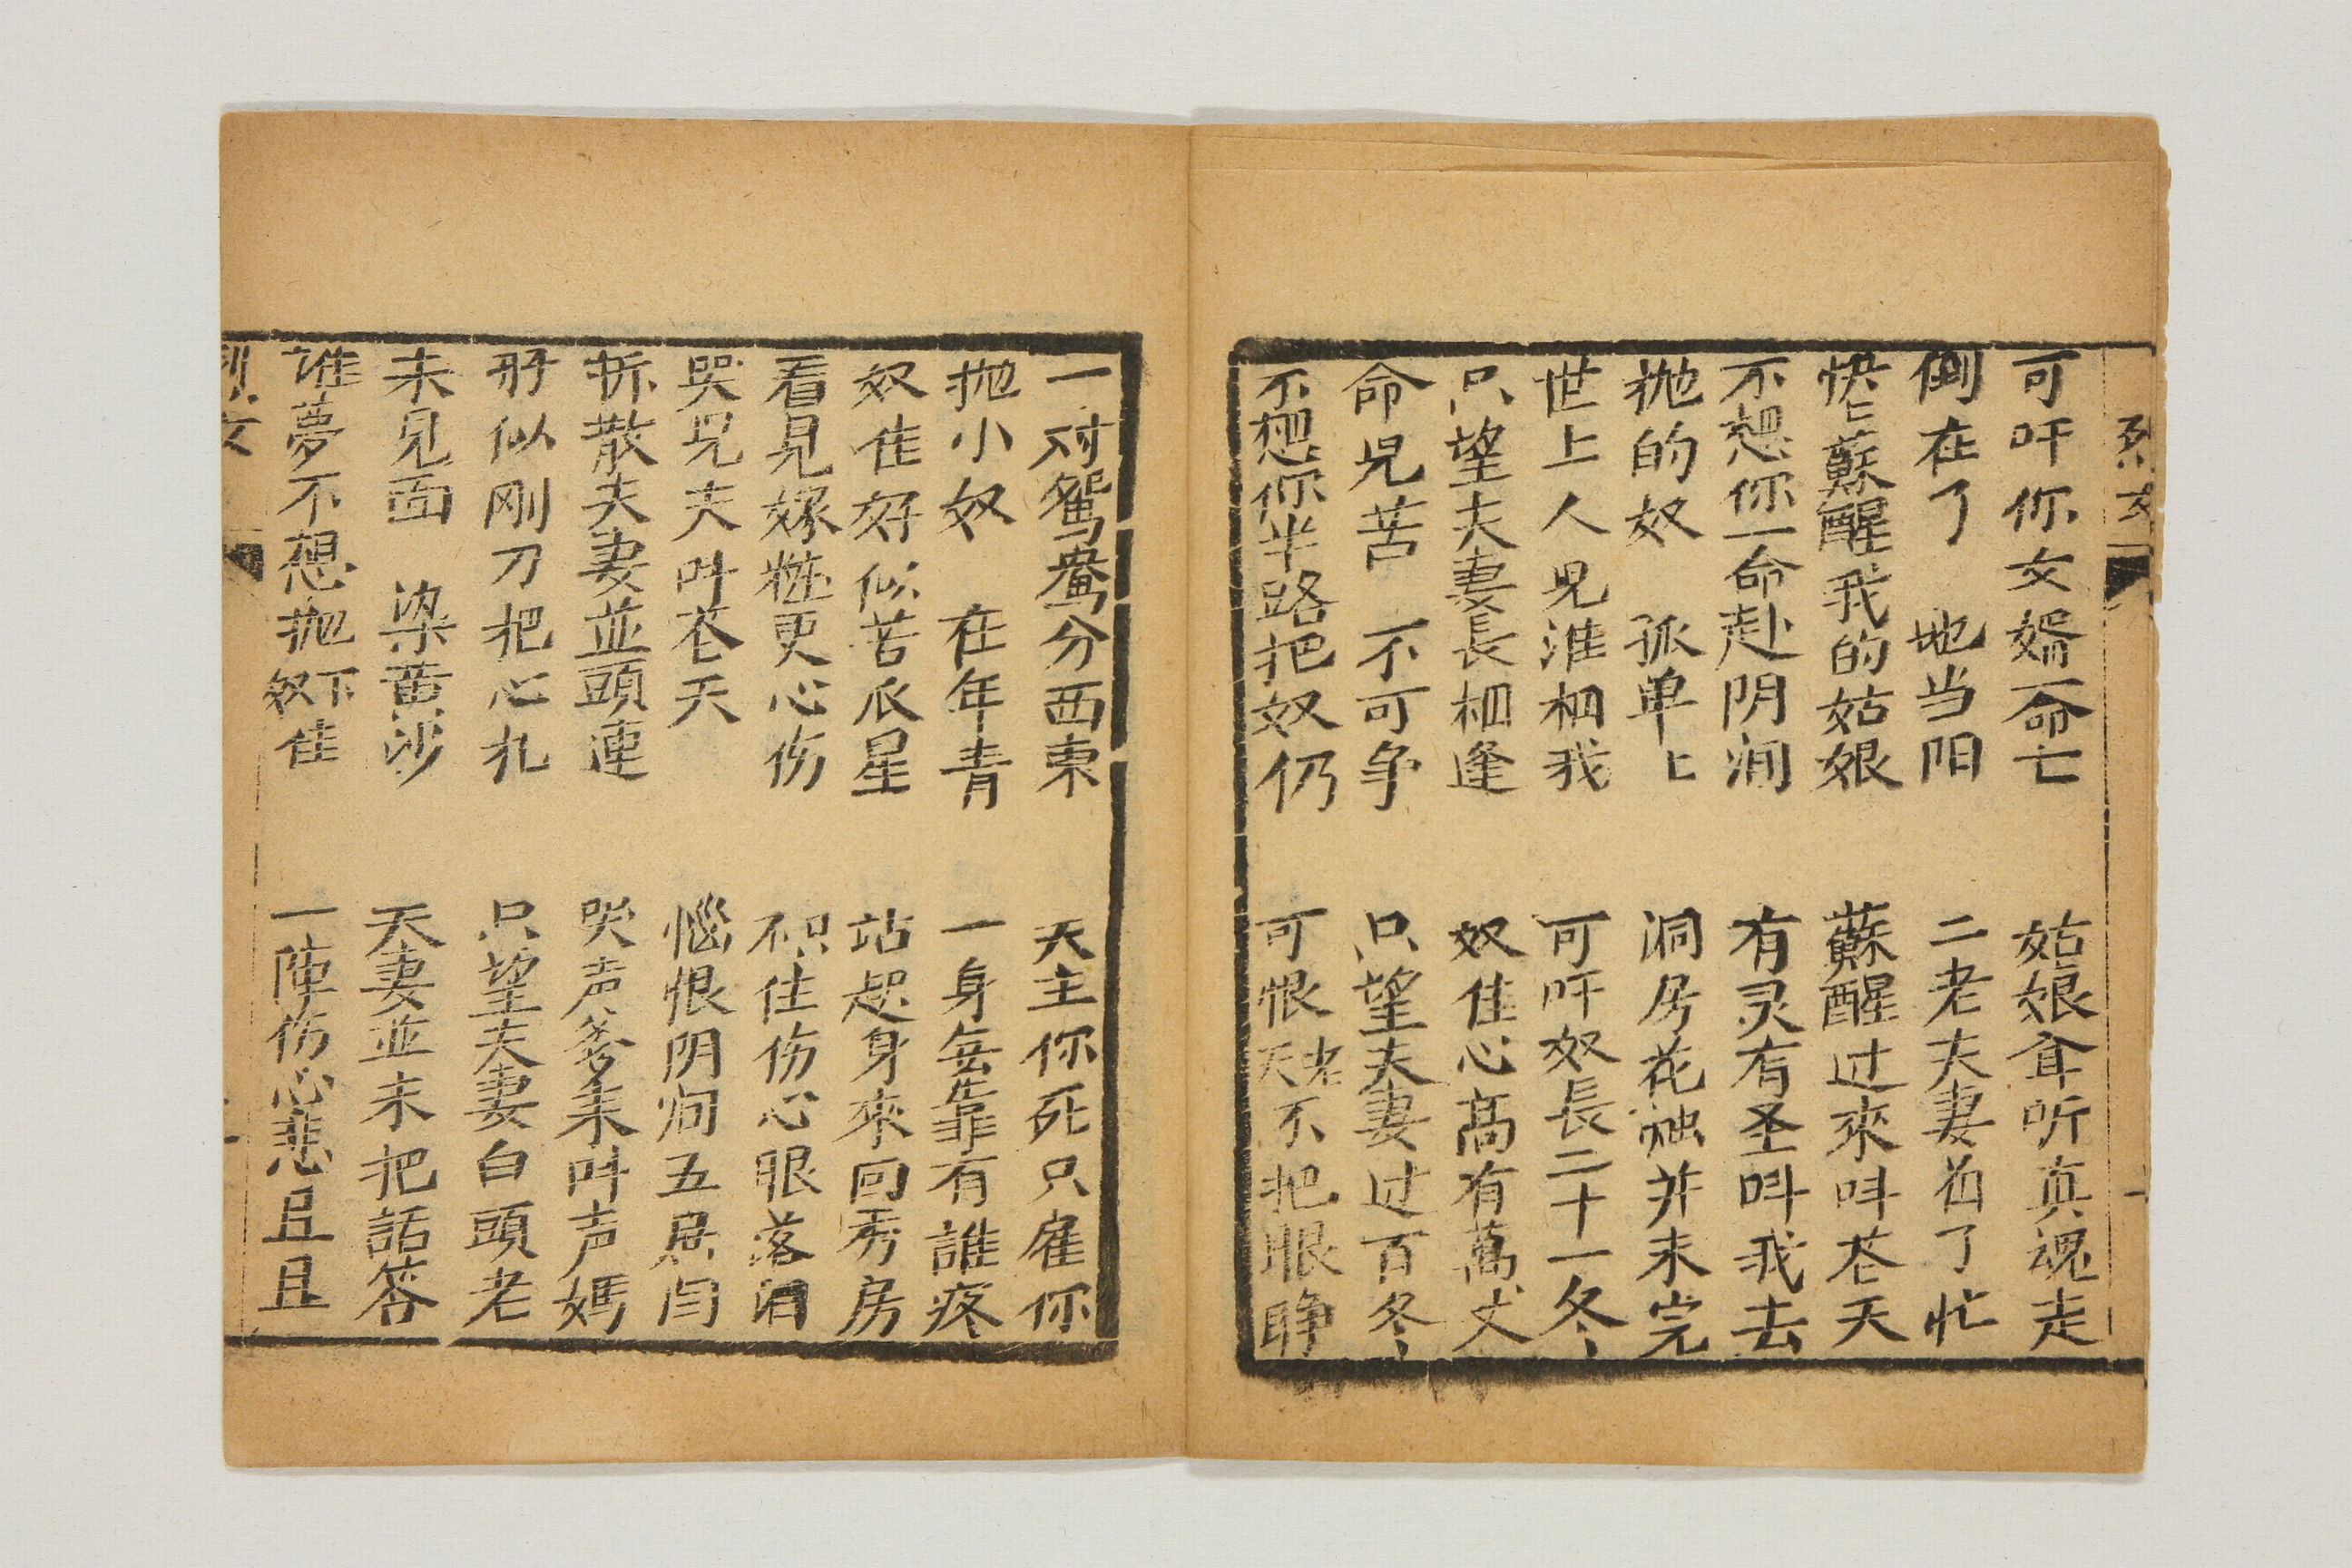 烈女
一
可吁你女婿一命亡 姑娘耳听真魂走
倒在了 地当阳 二老夫妻着了忙
快〻蘇醒我的姑娘 蘇醒过來呌苍天
不想你一命赴阴间 有灵有圣呌我去
抛的奴 孤单〻 洞房花烛并未完
世上人児淮相我 可吁奴長二十一冬
只望夫妻長相逢 奴佳心高有萬丈
命児苦 不可争 只望夫妻过百冬
不想你半路把奴仍 可恨老天不把眼睁
一对鴛鴦分西東 天主你死只雇你
抛小奴 在年青 一身無靠有誰疼
奴佳好似苦瓜星 站起身來回秀房
看見嫁粧更心伤 不只住伤心眼落泪
哭児夫呌苍天 惱恨阴间五居闫
拆散夫妻並頭連 哭声爹来呌声媽
好似刚刀把心扎 只望夫妻白頭老
未見面 染黄沙 夫妻並未把話答
誰夢不想抛下奴佳 一陣伤心悲且且
烈女